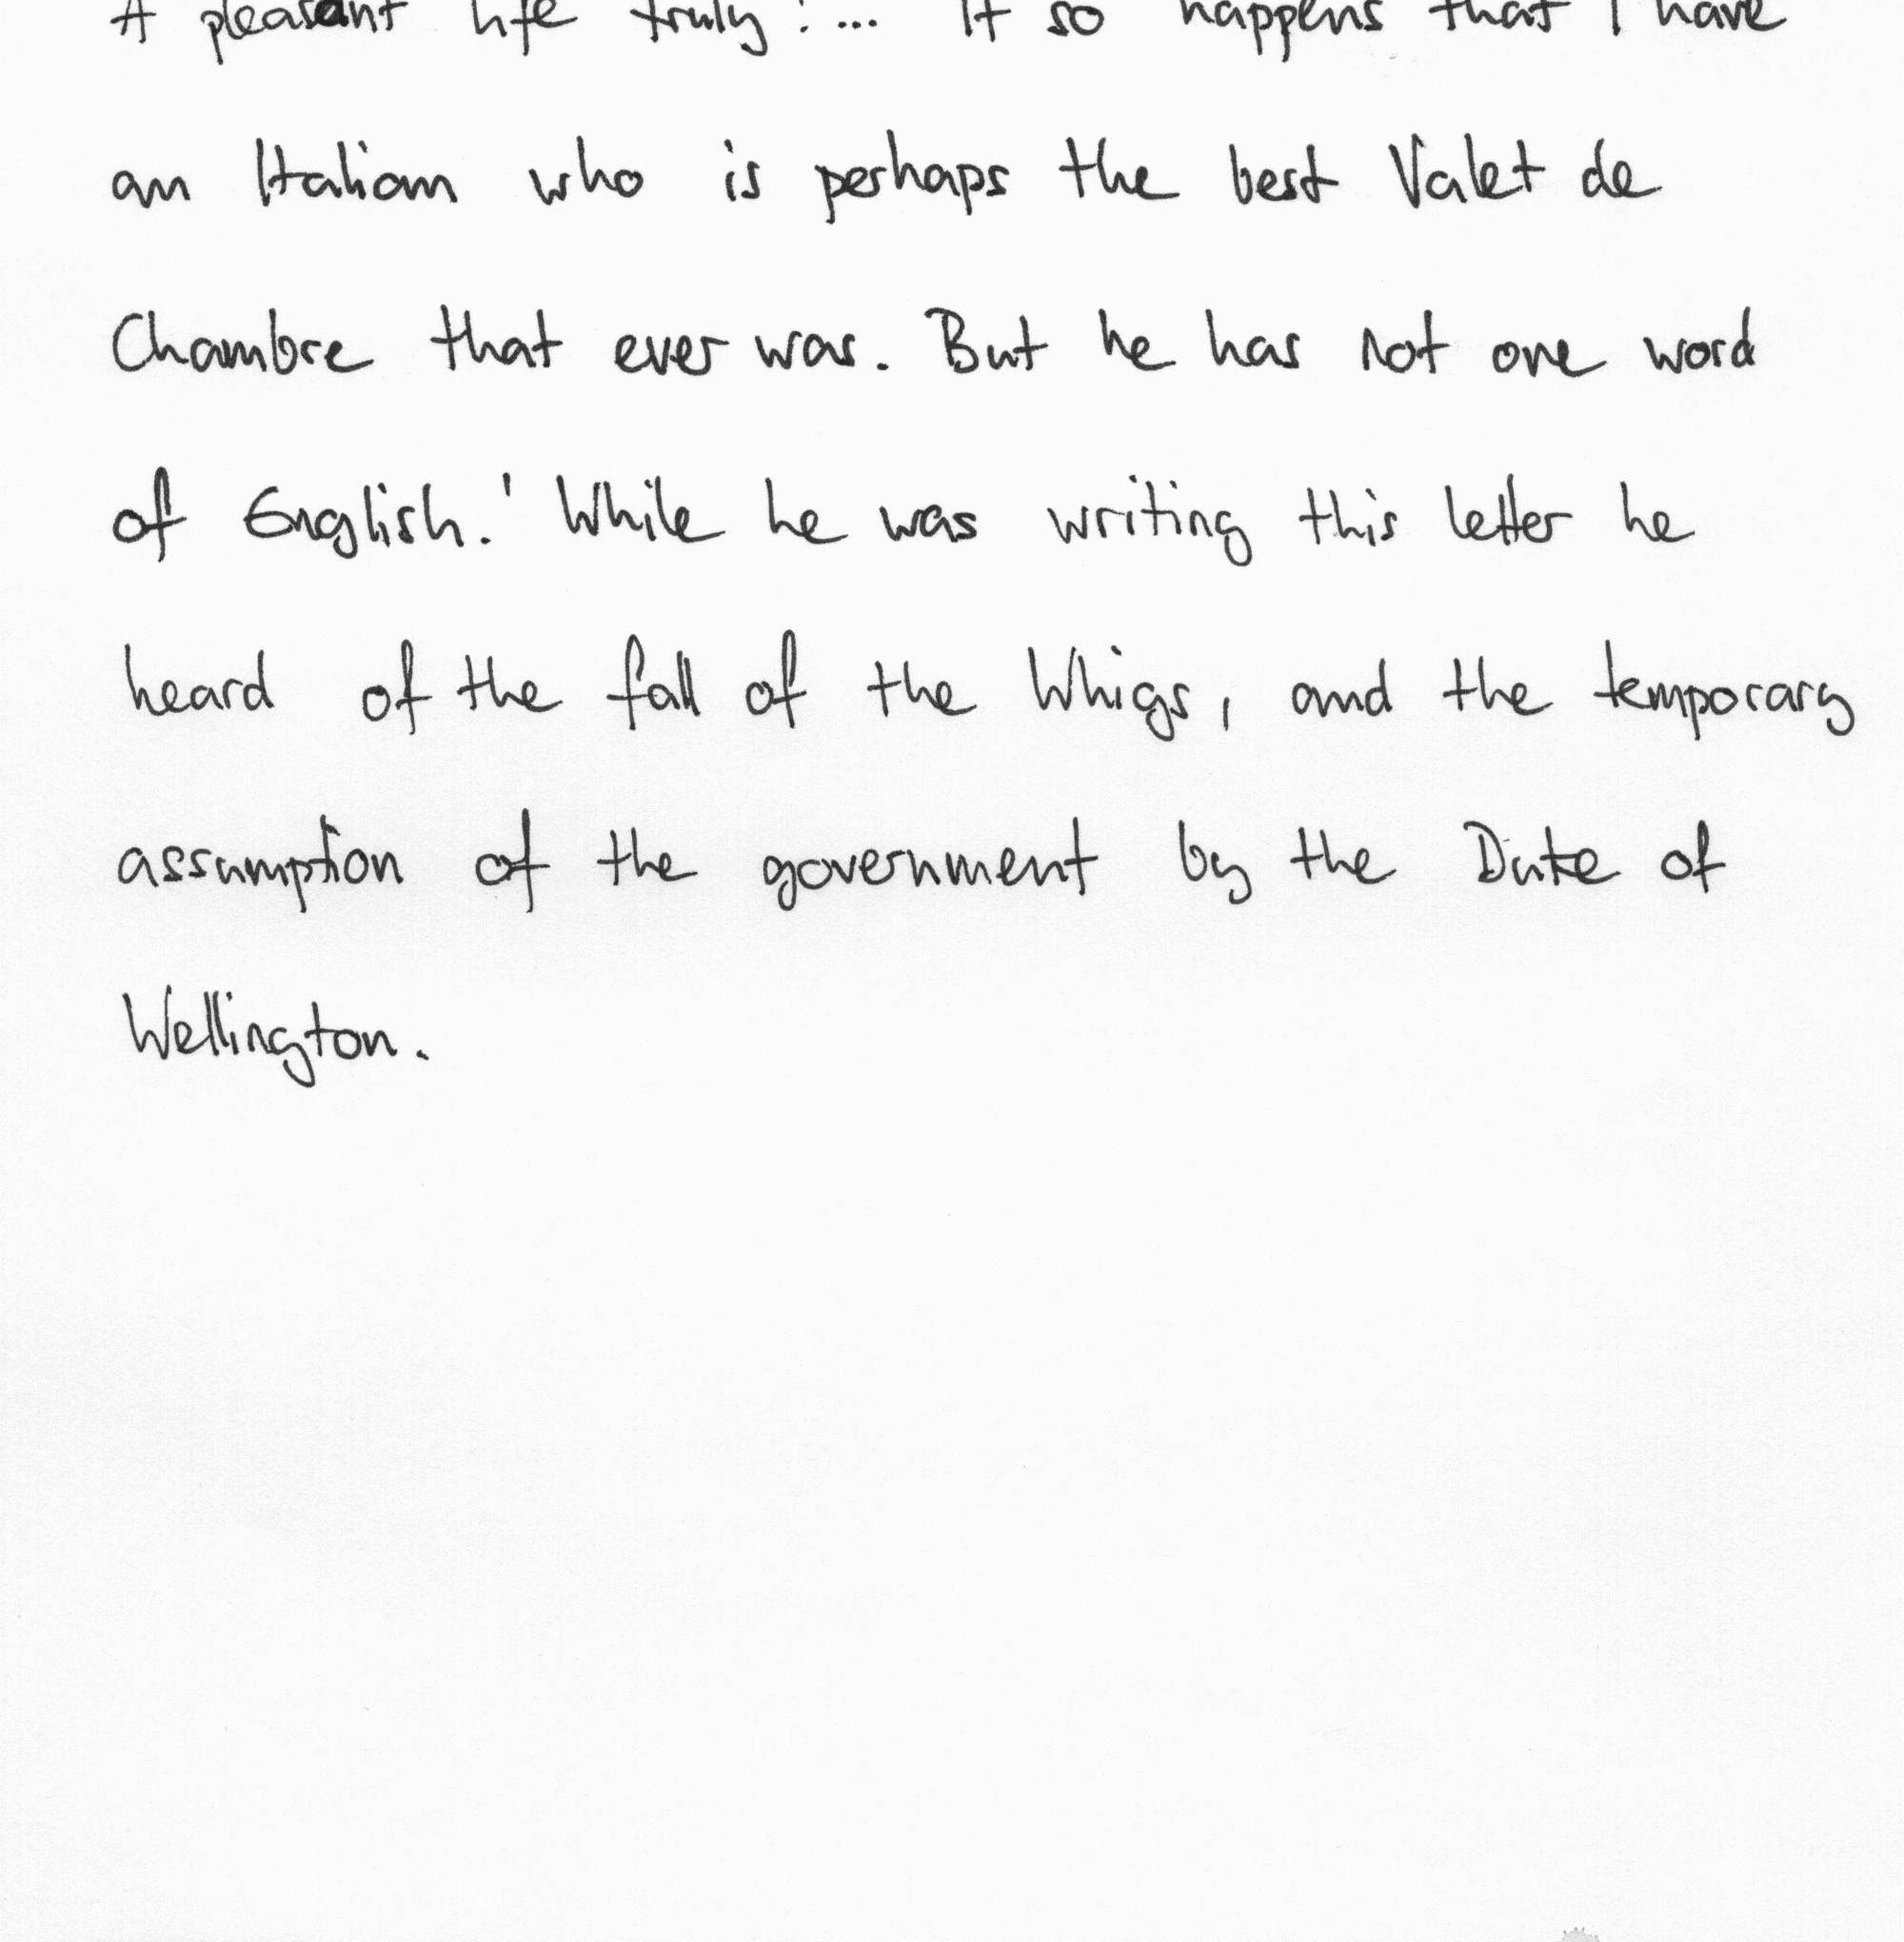 A pleasant life truly! ... It so happens that I have
an Italian who is perhaps the best Valet de
Chambre that ever was. But he has not one word
of English.' While he was writing this letter he
heard of the fall of the Whigs, and the temporary
assumption of the government by the Duke of
Wellington.